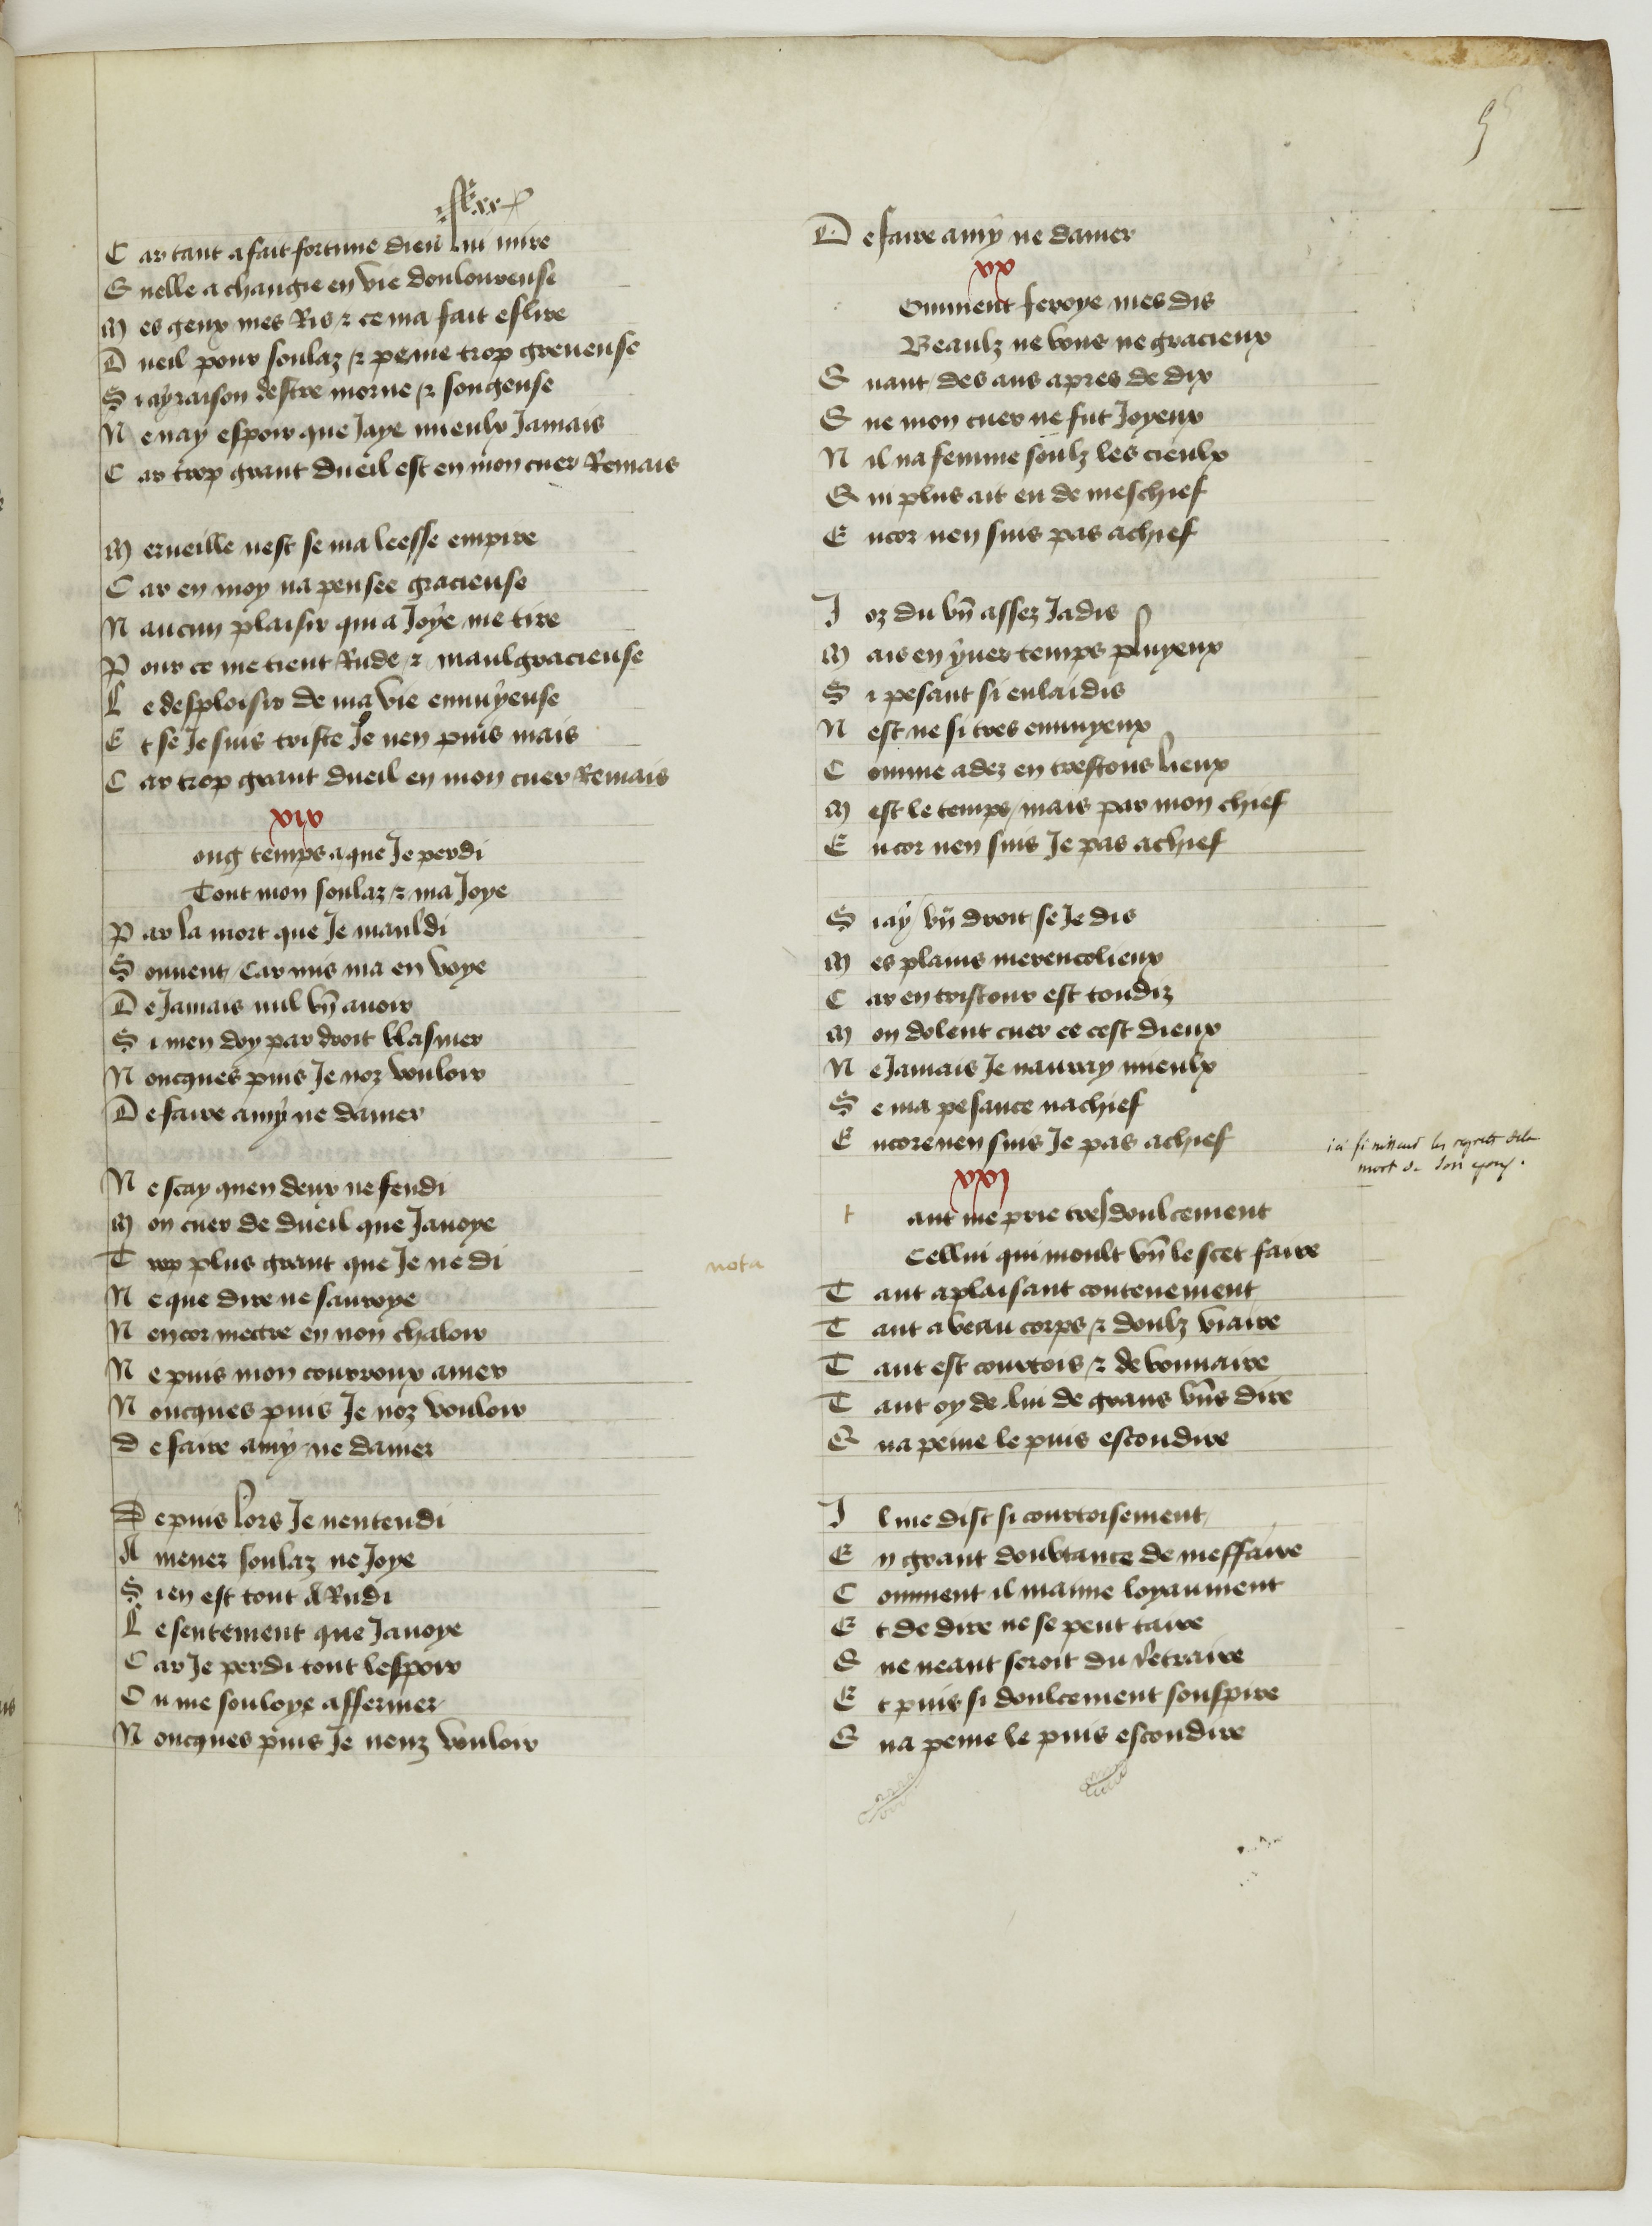 5
C ar tant a fait fortune dieu lui mire
Q uelle a changie en vie douloureuse
M es geux mes Ris & ce ma fait eslire
D ueil pour soulaz & peine trop greueuse
S i ay raison destre morne & songeuse
N e nay espoir que Jaye mieulx Jamais
C ar trop grant dueil est en mon cuer Remais
M erueille nest se ma leesse empire
C ar en moy na pensee gracieuse
N aucun plaisir qui a Joye me tire
P our ce me tient Rude & maulgracieuse
L e desplaisir de ma vie ennuyeuse
E t se Je suis triste Je nen puis mais
C ar trop grant dueil en mon cuer Remais
xix
ong temps a que Je perdi
Tout mon soulaz & ma Joye
P ar la mort que Je mauldi
S ouuent / Car mis ma en voye
D e Jamais nul bn̄ auoir
S i men doy par droit blasmer
N oncques puis Je noz vouloir
D e faire amy ne damer
N e scay quen deux ne fendi
M on cuer de dueil que Jauoye
T rop plus grant que Je ne di
N e que dire ne sauroye
N encor mectre en non chaloir
N e puis mon courroux amer
N oncques puis Je noz vouloir
d e faire amy ne damer
D epuis lors Je nentendi
A mener soulaz ne Joye
S i en est tout ARudi
L e sentement que Jauoye
C ar Je perdi tout lespoir
O u me souloye affermer
N oncques puis Je neuz vouloir
D e faire amy ne damer
xx
omment feroye mes dis
Beaulz ne bons ne gracieux
Q uant des ans apres de dix
Q ue mon cuer ne fut Joyeux
N il na femme soulz les cieulx
Q ui plus ait eu de meschief
E ncor nen suis pas achief
J oz du bn̄ assez Jadis
M ais en yuer temps pluyeux
S i pesant si enlaidis
N est ne si tres ennuyeux
C omme adez en trestous lieux
M est le temps / mais par mon chief
E ncor nen suis Je pas achief
S i ay bn̄ droit se Je dis
M es plains merencolieux
C ar en tristour est toudiz
M on dolent cuer ce cest dieux
N e Jamais Je nauray mieulx
S e ma pesance nachief
E ncore nen suis Je pas achief
ici finissent les regrets dela
mort de son epoux.
xxi
t ant me prie tres doulcement
nota
Cellui qui moult bn̄ le scet faire
T ant a plaisant contenement
T ant a beau corps & doulz viaire
T ant est courtois & debonnaire
T ant oy de lui de grans bn̄s dire
Q ua peine le puis escondire
J l me dist si courtoisement
E n grant doubtance de meffaire
C omment il maime loyaument
E t de dire ne se peut taire
Q ue neant seroit du retraire
E t puis si doulcement souspire
Q ua peine le puis escondire